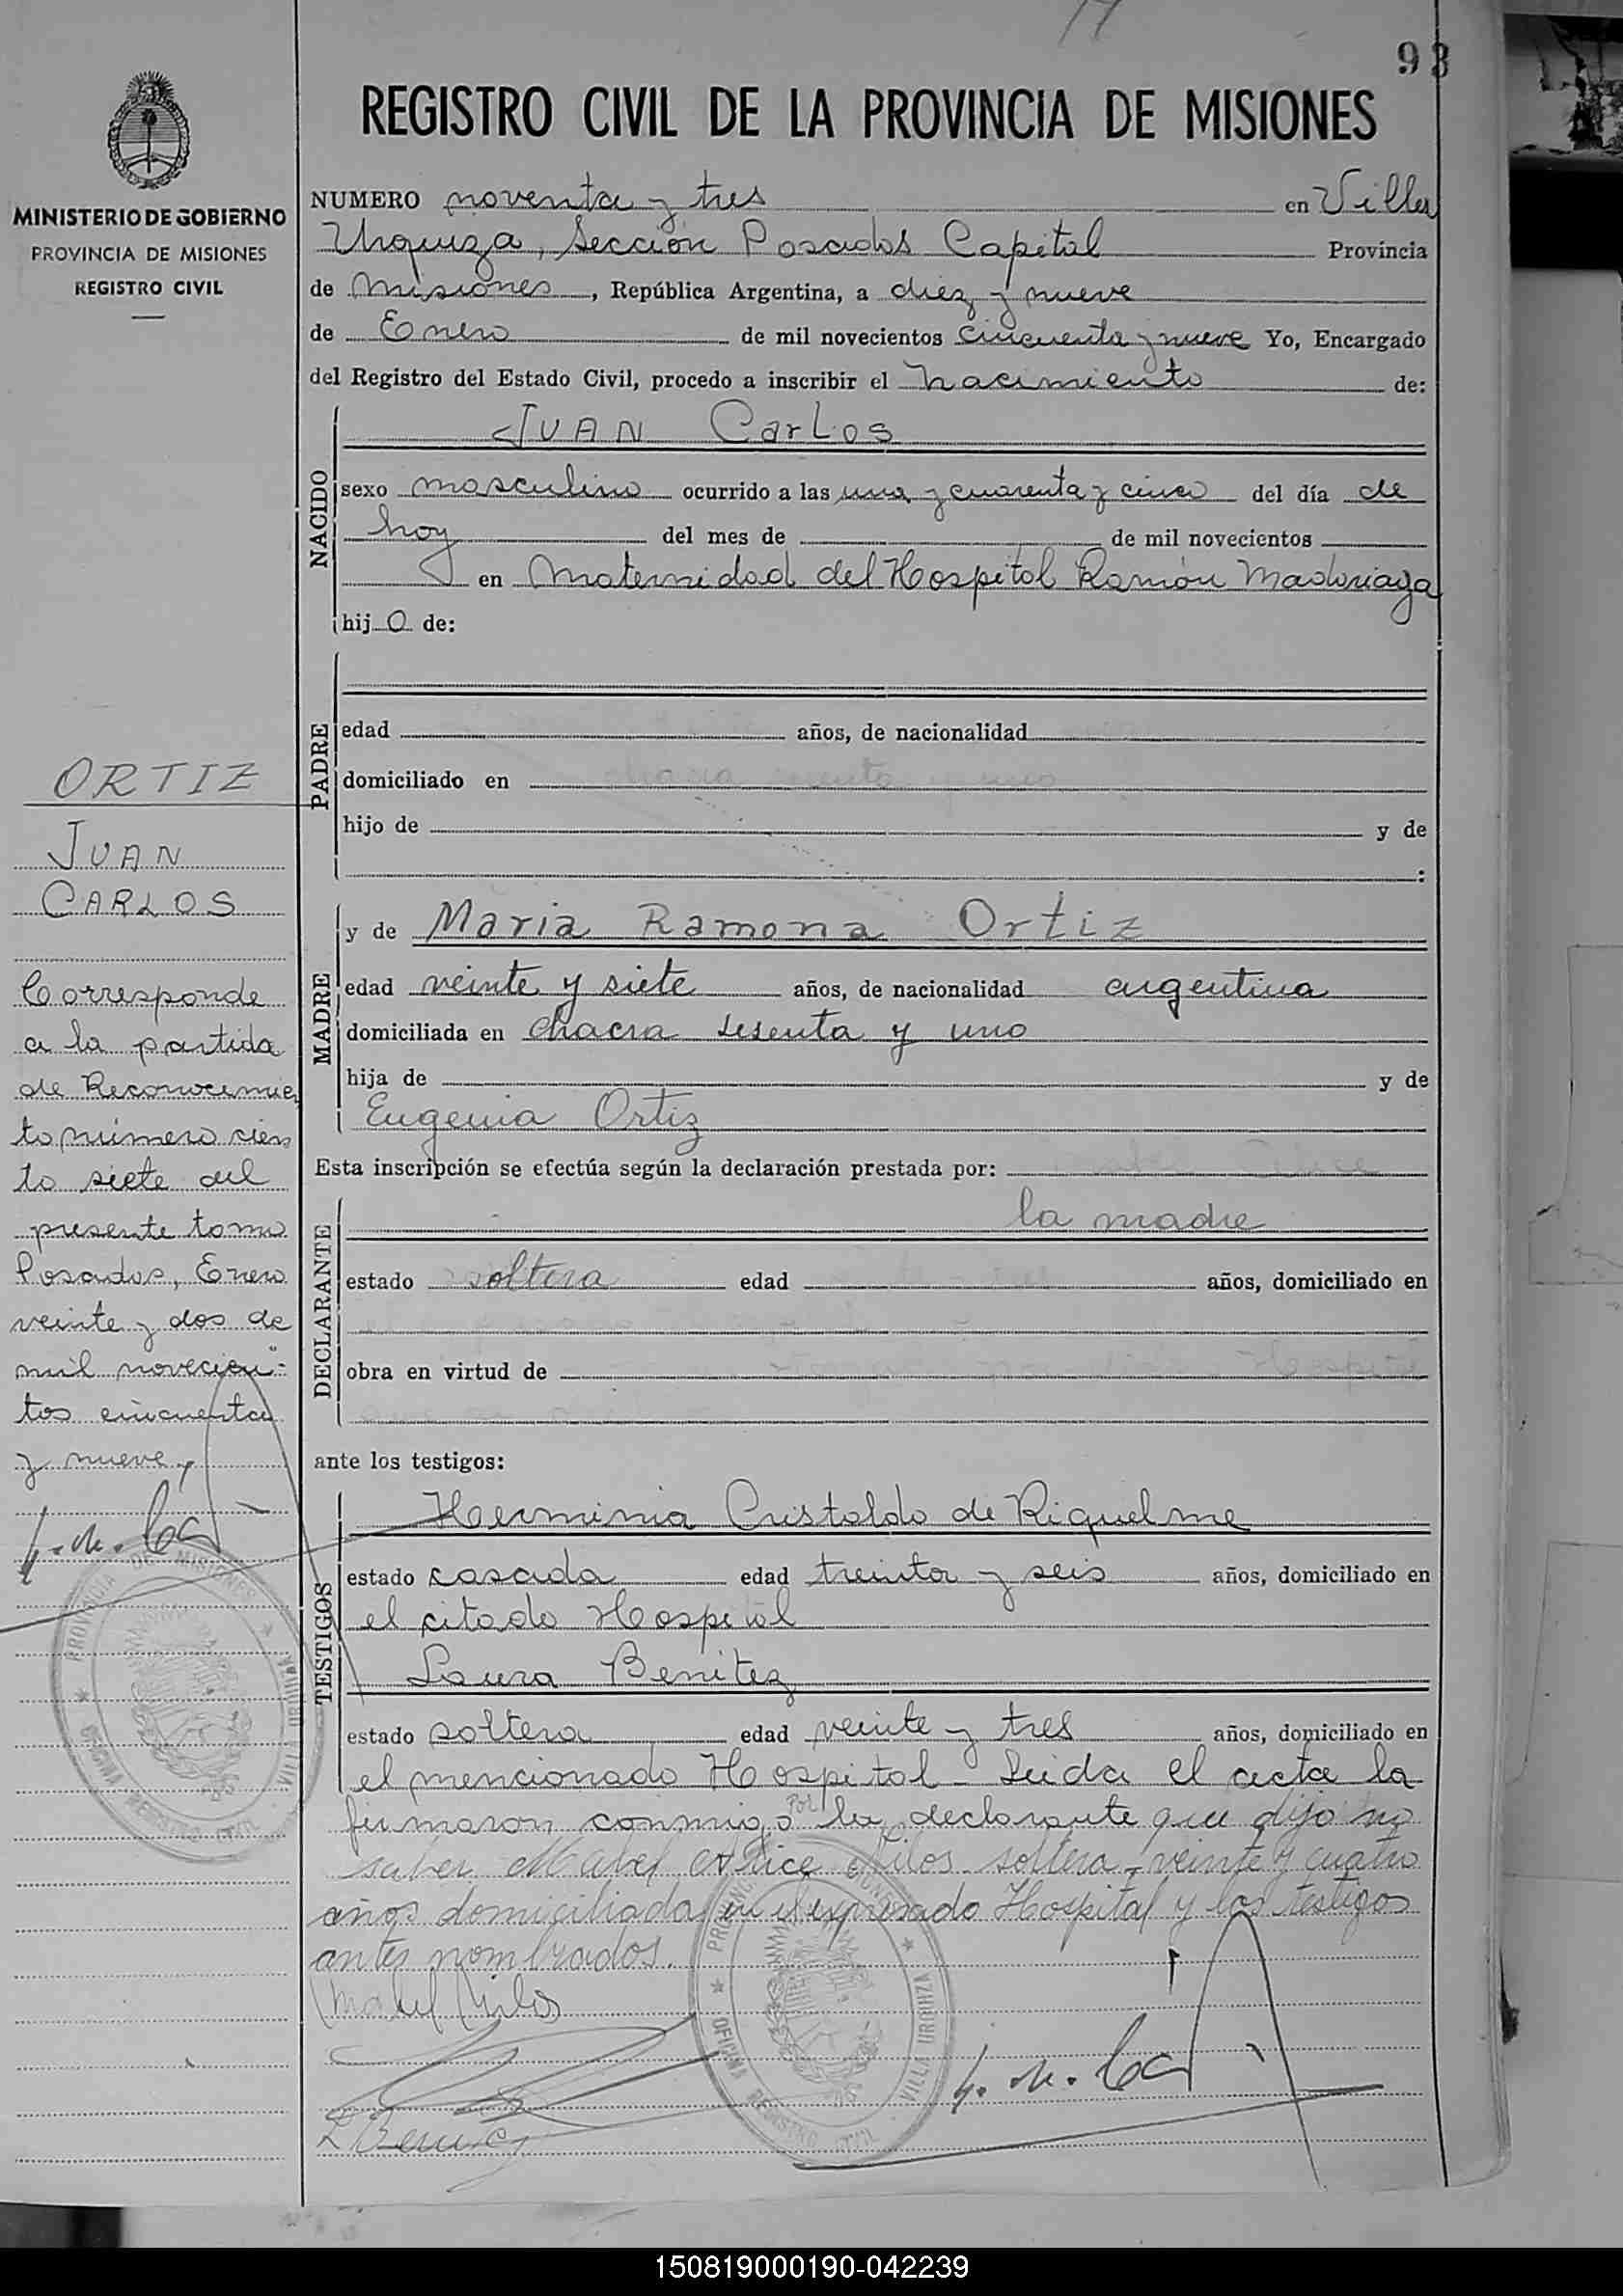 93
REGISTRO CIVIL DE LA PROVINCIA DE MISIONES
MINISTERIO DE GOBIERNO
PROVINCIA DE MISIONES
REGISTRO CIVIL
NUMERO noventa y tres en Villa
Urquiza, Sección Posadas Capital Provincia
de Misiones, República Argentina, a diez y nueve
de Enero de mil novecientos cincuenta y nueve Yo, Encargado
del Registro del Estado Civil, procedo a inscribir el nacimiento de:
NACIDO
JUAN Carlos
sexo masculino ocurrido a las una y cuarenta y cinco del día de
hoy del mes de de mil novecientos
en Maternidad del Hospital Ramón Madariaga
hijo de:
PADRE
edad años, de nacionalidad
domiciliado en
hijo de y de
:
MADRE
y de Maria Ramona Ortiz
edad veinte y siete años, de nacionalidad argentina
domiciliada en chacra sesenta y uno
hija de y de
Eugenia Ortiz
Esta inscripción se efectúa según la declaración prestada por:
DECLARANTE
la madre
estado soltera edad años, domiciliado en
obra en virtud de
ante los testigos:
TESTIGOS
Herminia Cristaldo de Riquelme
estado casada edad treinta y seis años, domiciliado en
el citado Hospital
Laura Benitez
estado soltera edad veinte y tres años, domiciliado en
el mencionado Hospital - Leida el acta la
firmaron conmigo por la declarante que dijo no
saber Mabel soltera, veinte y cuatro
años domiciliada en el expresado Hospital y los testigos
antes nombrados.
L Benitez
ORTIZ
JUAN
CARLOS
Corresponde
a la partida
de Reconocimien
to número cien
to siete del
presente tomo
Posadas, Enero
veinte y dos de
mil novecien=
tos cincuenta
y nueve
PROVINCIA DE MISIONES
VILLA URQUIZA
OFICINA REGISTRO CIVIL
PROVINCIA DE MISIONES
VILLA URQUIZA
OFICINA REGISTRO CIVIL
150819000190-042239